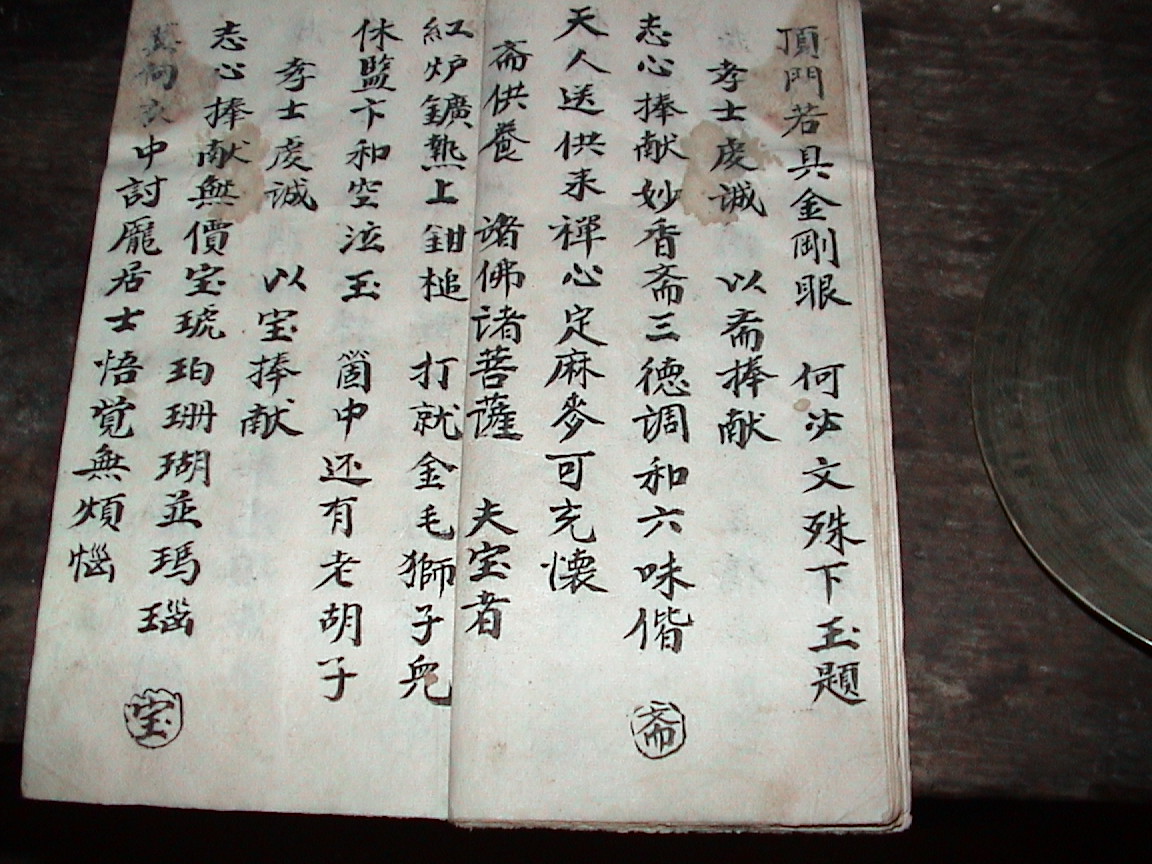 頂門若具金剛眼 何必文殊下玉題
孝士虔誠 以斋捧献
志心捧献妙香斋三德调和六味偕 斋
天人送供来禪心定麻麥可充懷
斋供養 諸佛诸菩薩 夫宝者
紅炉鑛熱上鉗槌 打就金毛獅子兒
休監卞和空泣玉 箇中还有老胡子
孝士虔诚 以宝捧献
志心捧献無價宝琥珀珊瑚並瑪瑙 宝
中討龎居士悟覚無煩惱